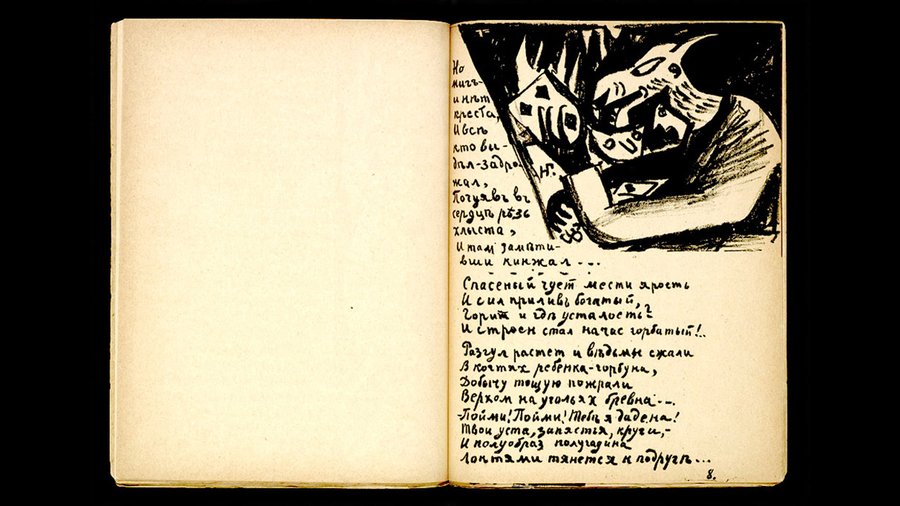 Но
мигъ-
и нѣт
креста,
И всѣ
кто ви-
дѣл-задро-
жал,
Почуявъ въ
сердцѣ рѣзь
хлыста,
И там замѣти-
вши кинжал - - -
Спасеный чует мести ярость
И сил приливъ богатый,
Горит и гдѣ усталость?
И строен стал на час горбатый!..
Разгул растет и вѣдьмы сжали
В когтях ребенка-горбуна,
Добычу тощую пожрали
Верхом на угольях бревна...
-Пойми! Пойми! Тебѣ я дадена!
Твои уста, запястья, круги,-
И полуобраз полугадина
Локтями тянется к подругѣ...
8.
НГ.